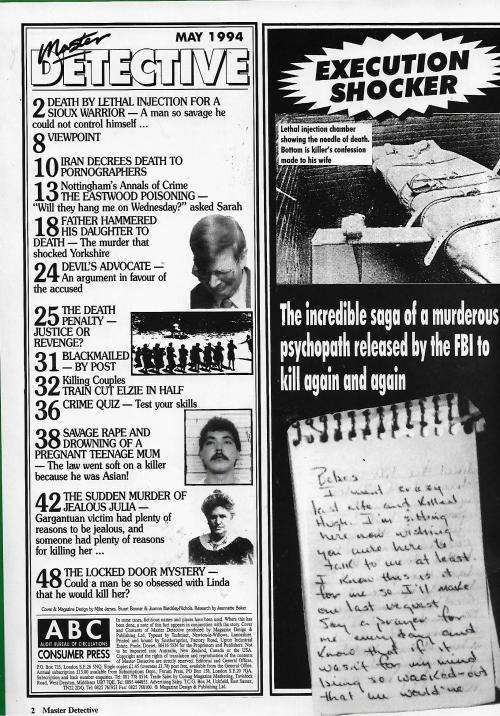 Master
MAY 1994
DETECTIVE
2 DEATH BY LETHAL INJECTION FOR A
SIOUX WARRIOR — A man so savage he
could not control himself ...
8 VIEWPOINT
10 IRAN DECREES DEATH TO
PORNOGRAPHERS
13 Nottingham's Annals of Crime
THE EASTWOOD POISONING —
"Will they hang me on Wednesday?" asked Sarah
18 FATHER HAMMERED
HIS DAUGHTER TO
DEATH — The murder that
shocked Yorkshire
24 DEVIL'S ADVOCATE —
An argument in favour of
the accused
25 THE DEATH
PENALTY —
JUSTICE OR
REVENGE?
31 BLACKMAILED
— BY POST
32 Killing Couples
TRAIN CUT ELZIE IN HALF
36 CRIME QUIZ — Test your skills
38 SAVAGE RAPE AND
DROWNING OF A
PREGNANT TEENAGE MUM
— The law went soft on a killer
because he was Asian!
42 THE SUDDEN MURDER OF
JEALOUS JULIA —
Gargantuan victim had plenty of
reasons to be jealous, and
someone had plenty of reasons
for killing her ...
48 THE LOCKED DOOR MYSTERY —
Could a man be so obsessed with Linda
that he would kill her?
Cover & Magazine Design by Mike James, Stuart Bonner & Joanna Research by Jeannette Baker
ABC
AUDIT BUREAU OF CIRCULATIONS
CONSUMER PRESS
In some cases, fictitious names and places have been used. Where this has
been done, a note of this fact appears in conjunction with the story. Cover
and Contents of Master Detective produced by Magazine Design &
Publishing Ltd,
2 Master Detective
EXECUTION
SHOCKER
Lethal injection chamber
showing the needle of death.
Bottom is killer's confession
made to his wife
The incredible saga of a murderous
psychopath released by the FBI to
kill again and again
I went crazy
last nite and killed
Hugh. I'm sitting
here now wishing
you were here to
talk to me at least.
I know this is it
for me so I'll make
one last request
Say a prayer for
me
know that my
mind
wacked-out
that